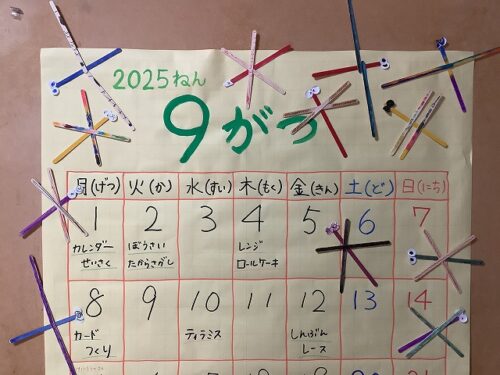 2025ねん
9がつ
月(げつ) 火(か) 水(すい) 木(もく) 金(きん) 土(ど) 日(にち)
1 2 3 4 5 6 7
カレンダー ぼうさい レンジ
せいさく たからさがし ロールケーキ
8 9 10 11 12 13 14
カード ティラミス しんぶん
つくり レース